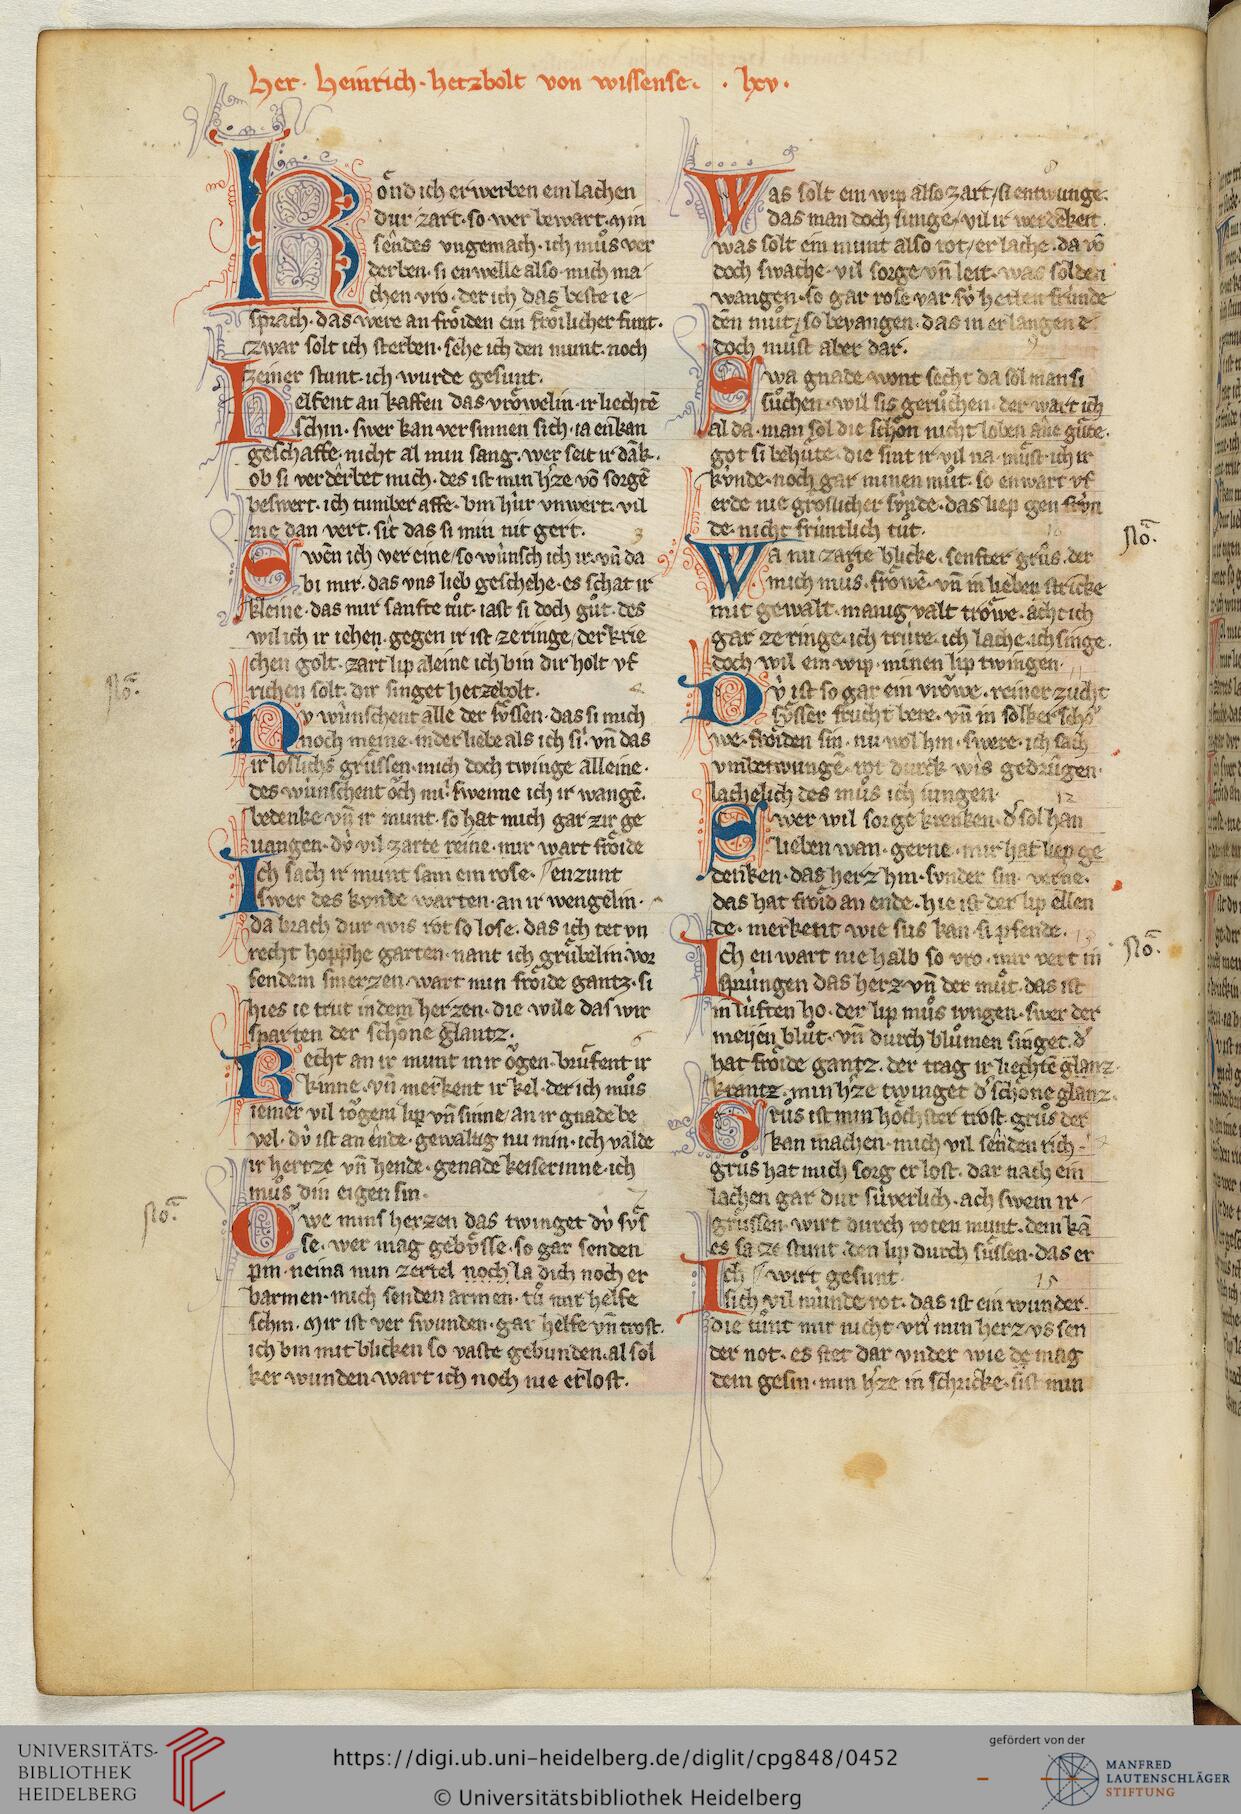 her · heinrich · hetzbolt von wissense · lxv ·
Kond ich erwerben ein lachen
dur zart · so wer bewart · min
sendes vngemach · ich muͦs ver
derben · si en welle also mich ma
chen vro · der ich das beste ie
sprach · das were an froͤiden ein froͤilicher funt ·
zwar solt ich sterben · sehe ich den munt · noch
zeiner stunt · ich wurde gesunt ·
helfent an kaffen das vroͤwelin · ir liechtē
schin · swer kan ver sinnen sich · ia en kan
geschaffe · nicht al min sang · wer seit ir dāk ·
ob si verderbet mich · des ist min h'ze võ sorgē
beswert · ich tumber affe · bin hùr vnwert · vil
me dan vert · sit das si min nit gert ·
Swen ich ver eine / so wùnsch ich ir · vn̄ da
bi mir · das vns lieb geschehe · es schat ir
kleine · das mir sanfte tuͦt · iast si doch guͦt · des
wil ich ir iehen · gegen ir ist ze ringe / der krie
chen golt · zart lip aleine ich bin dir holt · vf
richen solt · dir singet hetzebolt ·
Nv wùnschent alle der suͤssen · das si mich
noch meine · in der liebe als ich si · vn̄ das
ir loslichs gruͤssen · mich doch twinge alleine ·
des wunschent oͮch mir swenne ich ir wangē ·
bedenke vn̄ ir munt · so hat mich gar zir ge
uangen · dù vil zarte reine · mir wart froͤide
Ich sach ir munt sam ein rose · enzunt
swer des kvnde warten · an ir wengelin ·
da brach dur wis rot so lose · das ich tet vn
recht hopphe garten · nant ich gruͤbelin · vor
sendem smerzen · wart min froͤide gantz · si
hies ie trut in dem herzen · die wile das wir
sparten der schoͤne glantz ·
Recht an ir munt in ir oͮgen · bruͤfent ir
kinne · vn̄ merkent ir kel · der ich muͦs
iemer vil toͮgen / lip vn̄ sinne / an ir gnade be
vel · dù ist an ende · gewaltig nu min · ich valde
ir hertze vn̄ hende · genade keiserinne · ich
muͦs din eigen sin ·
Owe mins herzen das twinget dù suͤs
se · wer mag gebuͤsse · so gar senden
pin · neina min zertel noch la dich noch er
barmen · mich senden armen · tuͦ mir helfe
schin · Mir ist ver swunden · gar helfe vn̄ trost ·
ich bin mit blicken so vaste gebunden · al sol
ker wunden wart ich noch nie erlost ·
Was solt ein wip also zart / si entwunge ·
das man doch sunge · vil ir werdekeit ·
was solt ein munt also rot / er lache · da võ
doch swache · vil sorge vn̄ leit · was solden
wangen · so gar rose var · sù hetten frùnde
den muͦt / so bevangen · das in erlangen
doch muͤst aber dar ·
Swa gnade wont secht da sol man si
suͦchen · wil sis geruͦchen · der wart ich
al da · man sol die schoͤn nicht loben ane guͤte ·
got si behuͤte · die sint ir vil na · muͤst ich ir
kùnde · noch gar minen muͦt · so en wart vf
erde nie groͤslicher sùnde · das liep gen frùn
de · nicht frùntlich tuͦt ·
Wa nu zarte blicke · senfter gruͦs · der
mich muͦs · froͤwē · vn̄ in lieben stricke
mit gewalt · manig valt troͤwe · acht ich
gar ze ringe · ich trure · ich lache · ich singe ·
doch wil ein wip · minen lip twingen ·
Dù ist so gar ein vroͮwe · reiner zucht
suͤsser frucht bere · vn̄ in solker schoͮ
we · froͤiden sin · nu wol hin · swere · ich sach
vmbetwungē · rot durch wis gedrungen ·
lachelich des muͦs ich iungen ·
Swer wil sorge krenken · d' sol han
lieben wan · gerne · mir hat liep ge
denken · das herz hin · svnder sin · verne ·
das hat froͤid an ende · hie ist der lip ellen
de · merkent wie sus kan si pfende ·
Ich en wart nie halb so vro · mir vert in
sprùngen das herz vn̄ der muͦt · das ist
in lùften ho · der lip muͦs iungen · swer der
meijen bluͦt · vn̄ durch bluͦmen singet · d'
hat froͤide gantz · der trag ir liechtē glanz
krantz · min h'ze twinget d' schoͤne glanz ·
Gruͦs ist min hoͤchster trost · gruͦs der
kan machen · mich vil senden rich ·
gruͦs hat mich sorg er lost · dar nach ein
lachen gar dur sùverlich · ach swem ir
gruͤssen · wirt durch roten munt · dem kā
es sa ze stunt · den lip durch suͤssen · das er
Ich wirt gesunt ·
sich vil mùnde rot · das ist ein wunder ·
die tuͦnt mir nicht · vn̄ min herz vs sen
der not · es stet dar vnder wie de mag
dem gesin · min h'ze in schricke · sist min
No.
No.
No.
No.
UNIVERSITÄTS-
BIBLIOTHEK
HEIDELBERG
https://digi.ub.uni-heidelberg.de/diglit/cpg848/0452
© Universitätsbibliothek Heidelberg
gefördert von der
MANFRED
LAUTENSCHLÄGER
STIFTUNG